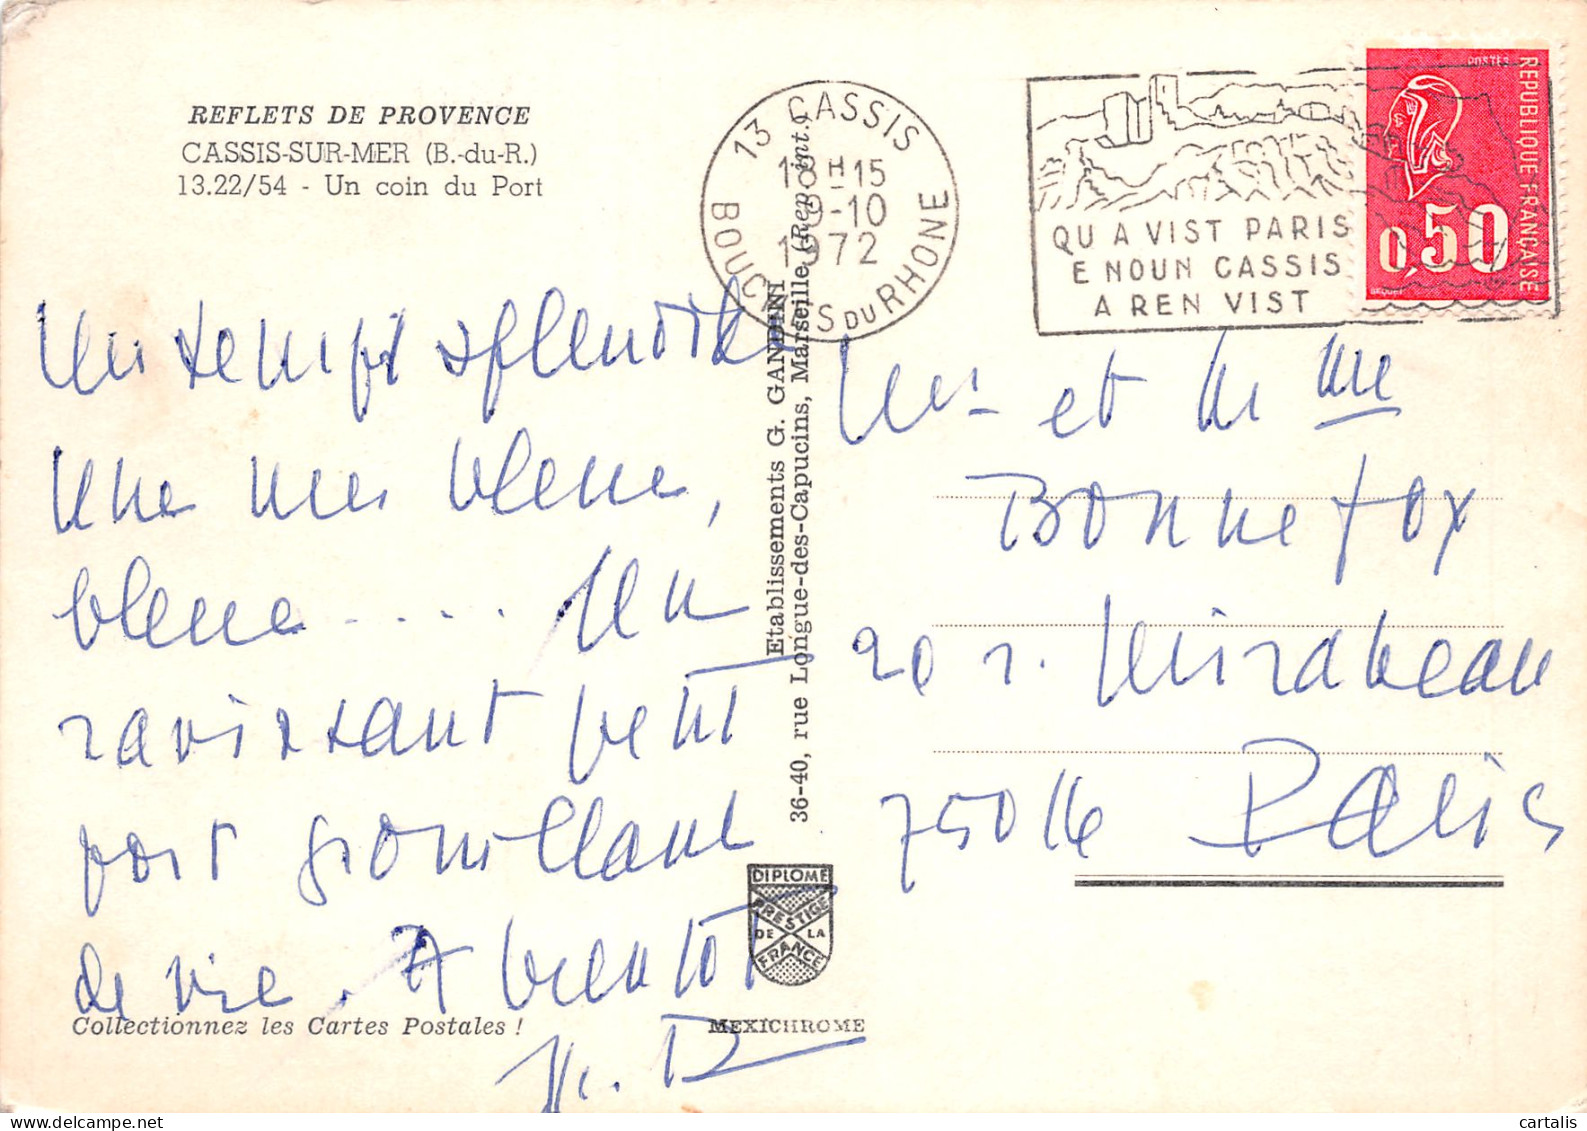 REFLETS DE PROVENCE
CASSIS-SUR-MER (B.-du-R.)
13.22/54 - Un coin du Port
13 CASSIS
18H15
9-10
1972
BOUCHES DU RHONE
QU A VIST PARIS
E NOUN CASSIS
A REN VIST
POSTES
REPUBLIQUE FRANÇAISE
0,50
BEQUET
Un temps splendide
Une mer bleue,
bleue..... Un
ravissant petit
port grouillant
de vie. A bientôt
Etablissements G. GANDINI
36-40, rue Longue-des-Capucins, Marseille (Rep. int.)
Mr et Mme
Bonnefox
20 r. Mirabeau
75016 Paris
DIPLOME
PRESTIGE
DE LA
FRANCE
Collectionnez les Cartes Postales !
MEXICHROME
cartalis